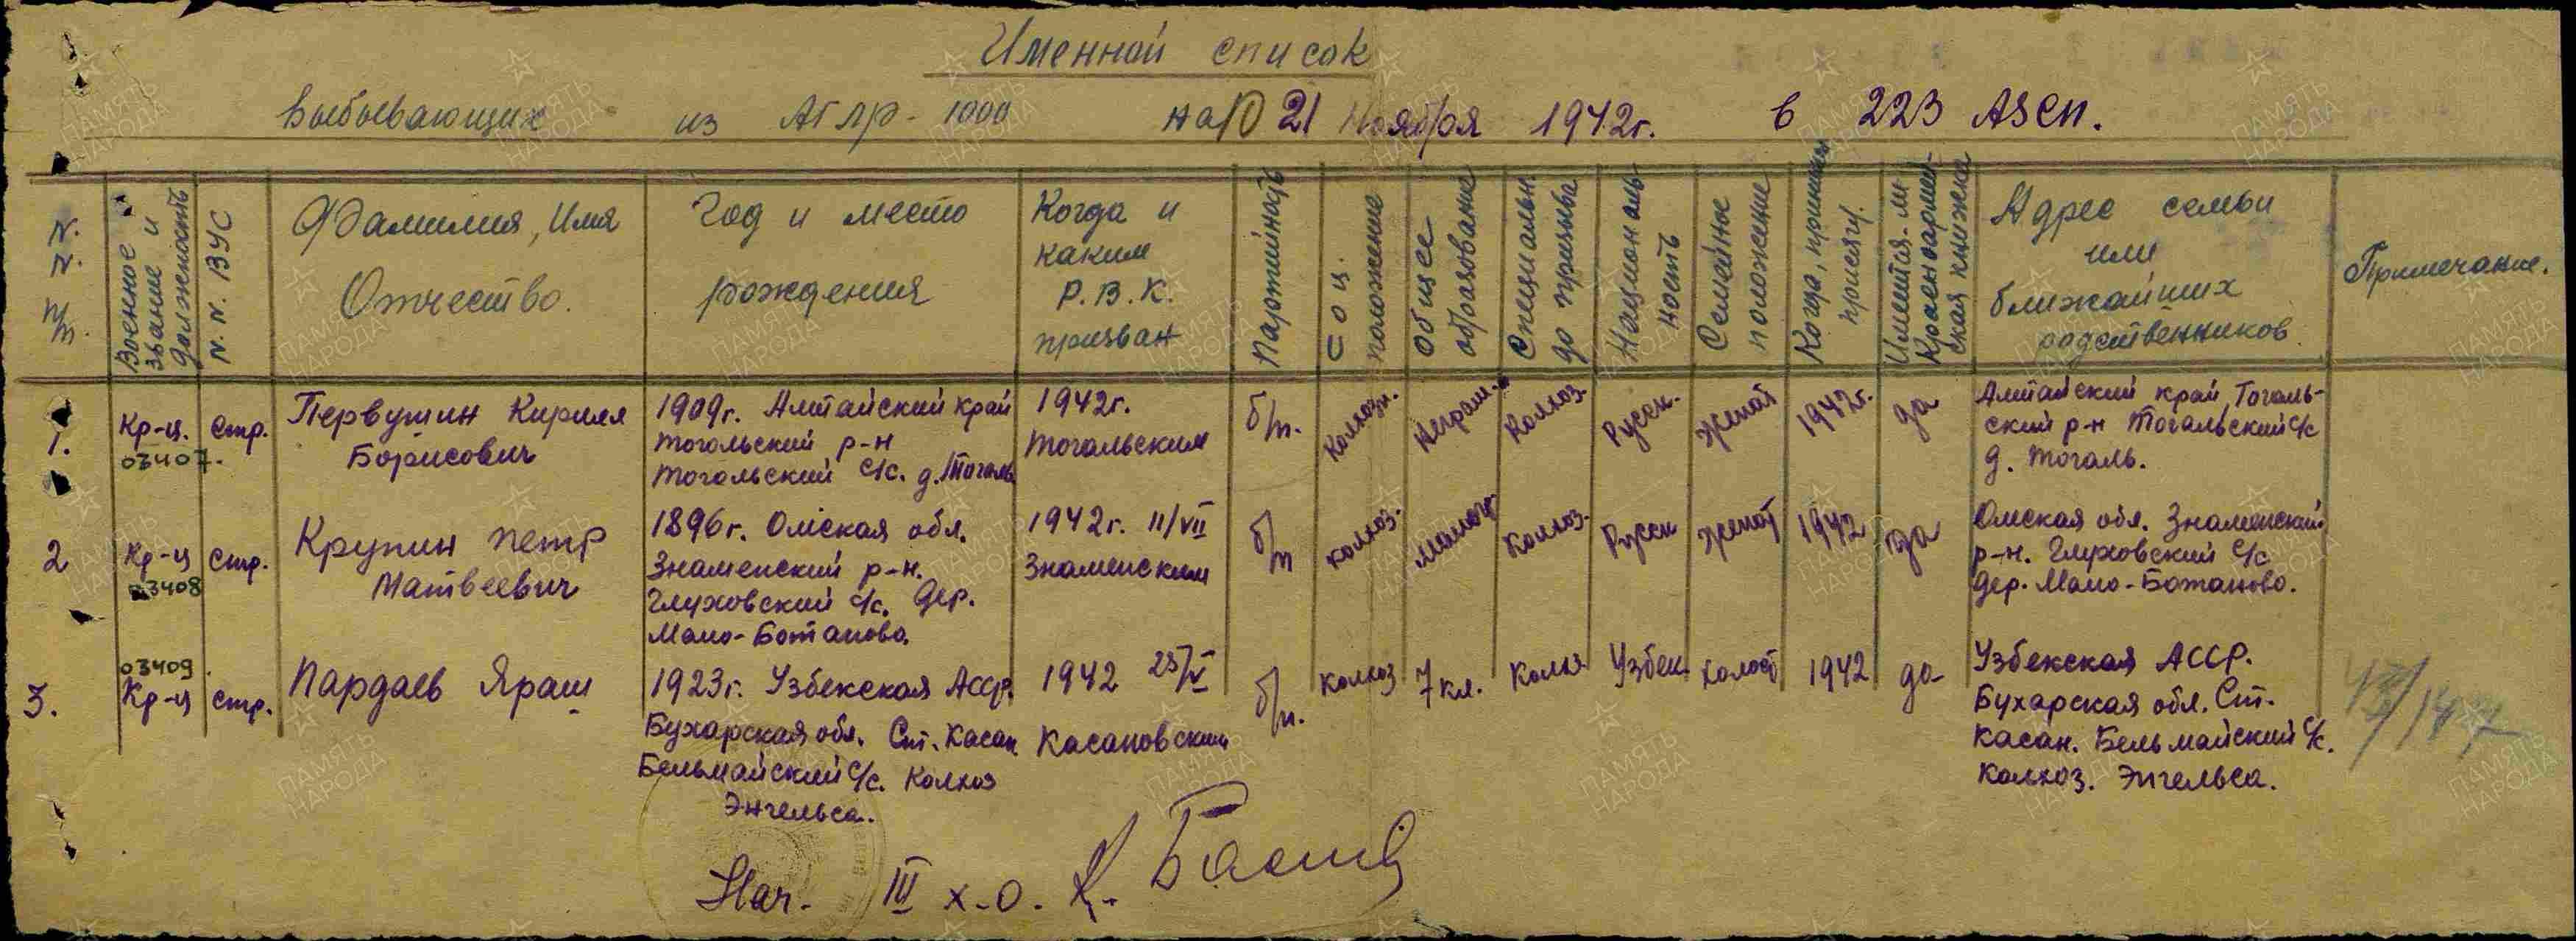 Именной список
выбывающих из АГЛР - 1000 на 21 Ноября 1942г. в 223 АЗСП.
N. N. п/п.
Военное звание и должность
N. N. ВУС
Фамилия, Имя Отчество.
Год и место рождения
Когда и каким Р.В.К. призван
Партийность
Соц. положение
Общее образование
Специальн. до призыва
Националь- ность
Семейное положение
Когда, принял присягу.
Имеется-ли Красноармей- ская книжка
Адрес семьи или ближайших родственников.
Примечание.
1. Кр-ц. стр. Первушин Кирилл 1909г. Алтайский край 1942г. б/п. Колхозн. Неграм. Колхоз. Русск. женат 1942г. да Алтайский край Тогуль-
03407. Борисович Тогульский р-н Тогульским ский р-н Тогульский с/с
Тогульский с/с. д. Тогуль д. Тогуль.
2 Кр-ц стр. Крупин Петр 1896г. Омская обл. 1942г. 11/VII б/п колхоз. Малогр. Колхоз. Русск женат 1942 да Омская обл. Знаменский
03408 Матвеевич Знаменский р-н. Знаменским р-н. Глуховский с/с
Глуховский с/с. дер. дер. Мало-Ботаново.
Мало-Ботаново.
03409.
3. Кр-ц стр. Пардаев Яраш 1923г. Узбекская АССР. 1942 25/V б/п. колхоз 7 кл. Колхоз Узбек. холост 1942 да Узбекская АССР.
Бухарская обл. Ст. Касан Касановским Бухарская обл. Ст.
Бельмайский с/с. Колхоз Касан. Бельмайский с/с.
Энгельса. Колхоз. Энгельса.
Нач. III х.о.
ПАМЯТЬ НАРОДА